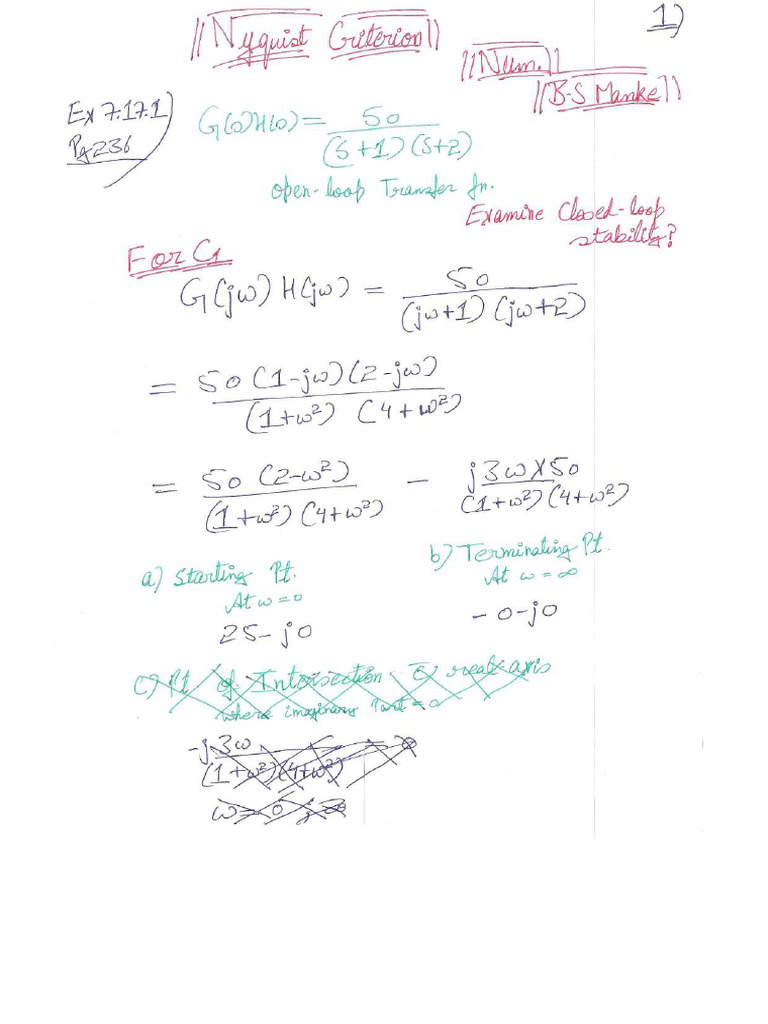 1)
||Nyquist Criterion||
||Num.||
||B-S Manke||
Ex 7.17.1)
Pg 236
G(s)H(s) = 50
(s+1)(s+2)
open-loop Transfer fn.
Examine Closed-loop
stability?
For C1
G(jω)H(jω) = 50
(jω+1)(jω+2)
= 50(1-jω)(2-jω)
(1+ω²)(4+ω²)
= 50(2-ω²) - j3ω×50
(1+ω²)(4+ω²) (1+ω²)(4+ω²)
a) Starting Pt.
At ω=0
25-j0
b) Terminating Pt.
At ω=∞
-0-j0
c) Pt of Intersection c̄ real axis
where imaginary Part=0
-j3ω = 0
(1+ω²)(4+ω²)
ω=0